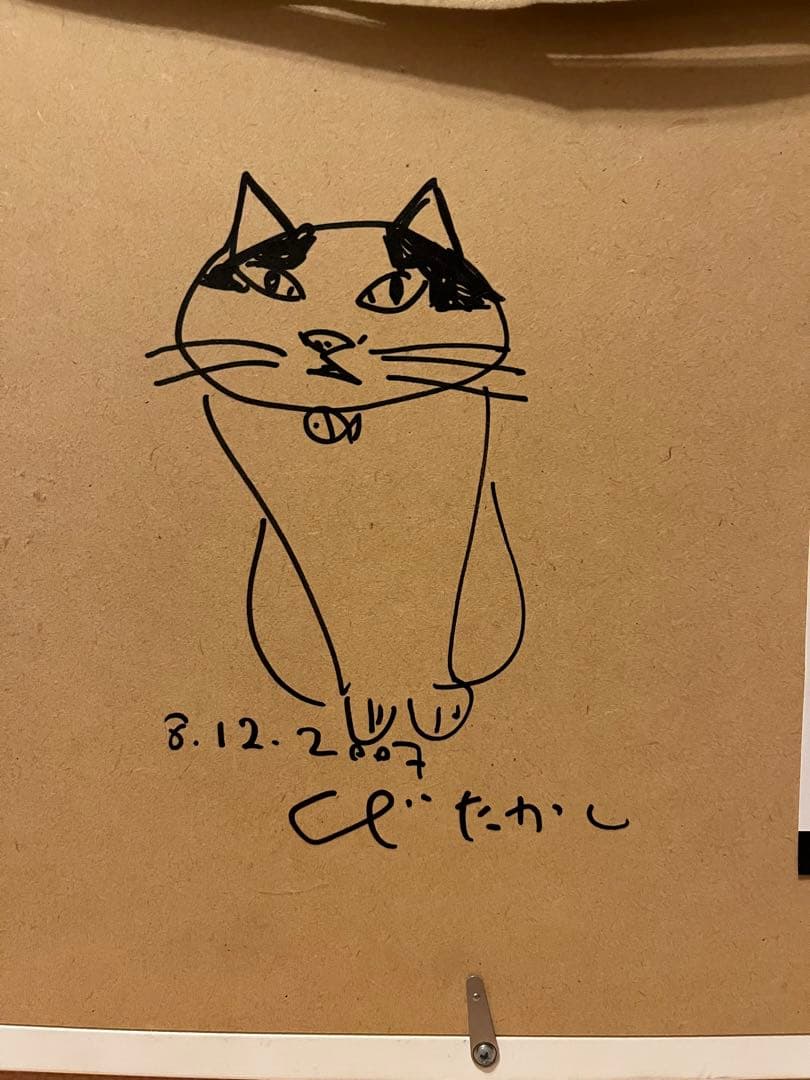 8.12.2007
たかし